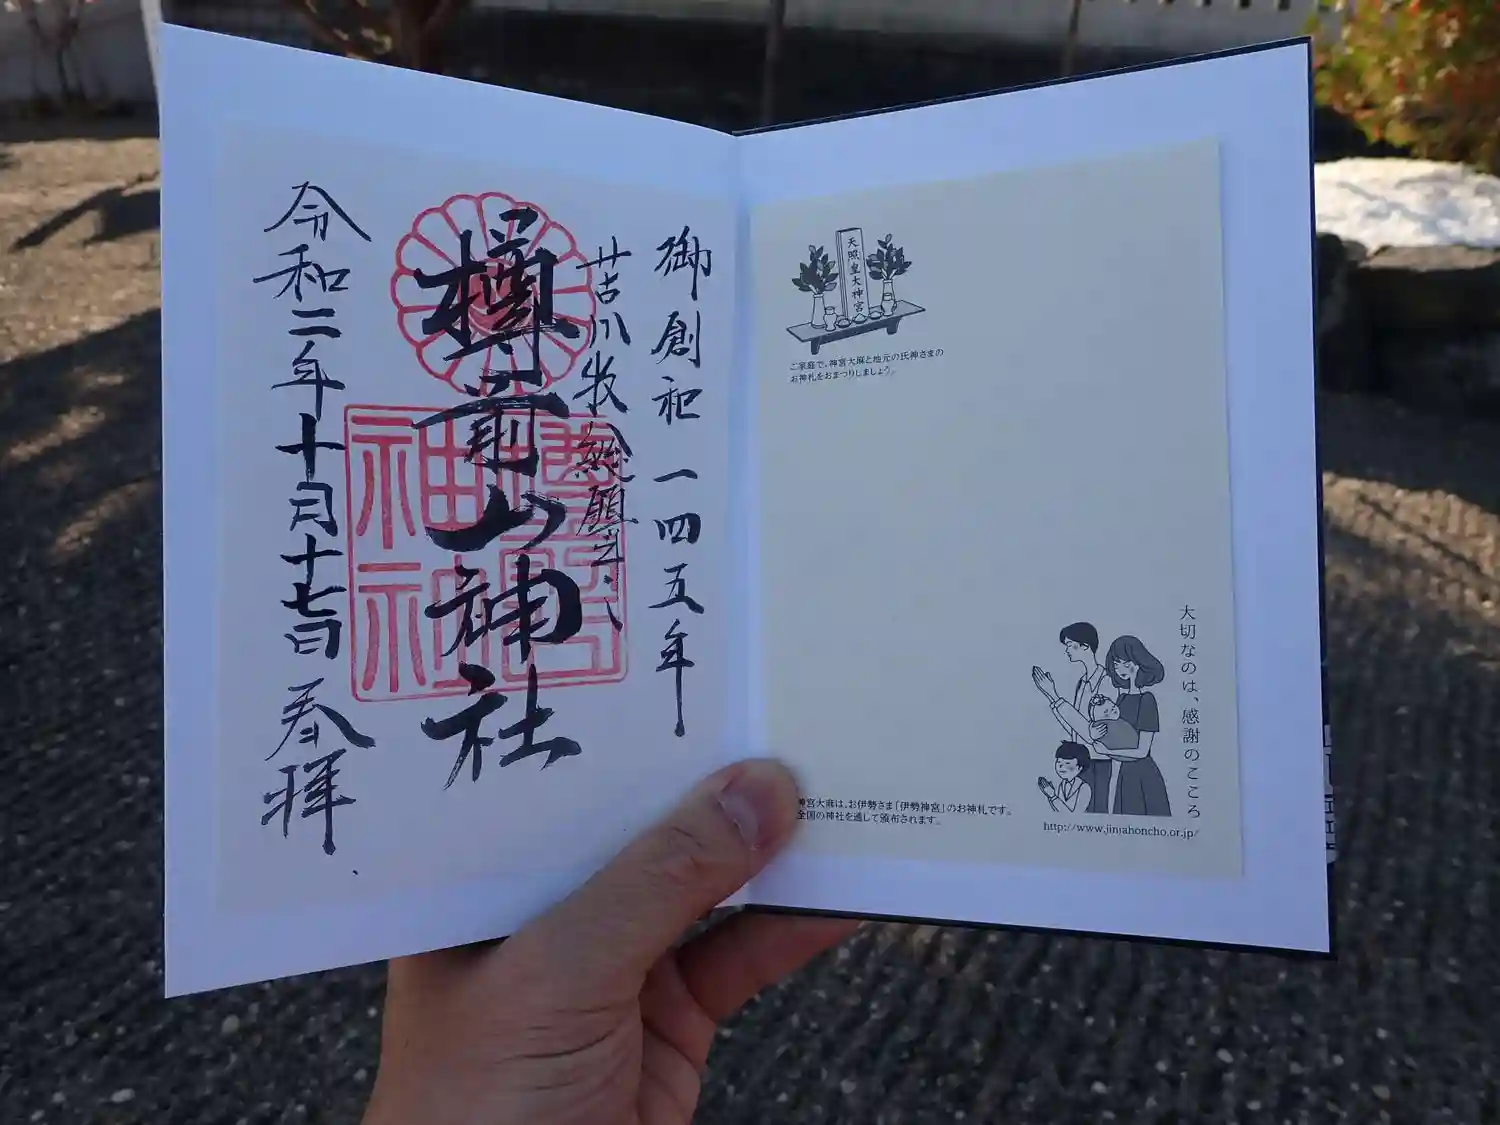 天照皇大神宮
ご家庭で、神宮大麻と地元の氏神さまの
お神札をおまつりしましょう。
大切なのは、感謝のこころ
神宮大麻は、お伊勢さま「伊勢神宮」のお神札です。
全国の神社を通して頒布されます。
http://www.jinjahoncho.or.jp/
御創祀一四五年
苫小牧総鎮守
樽前山神社
令和二年十月十七日 奉拝